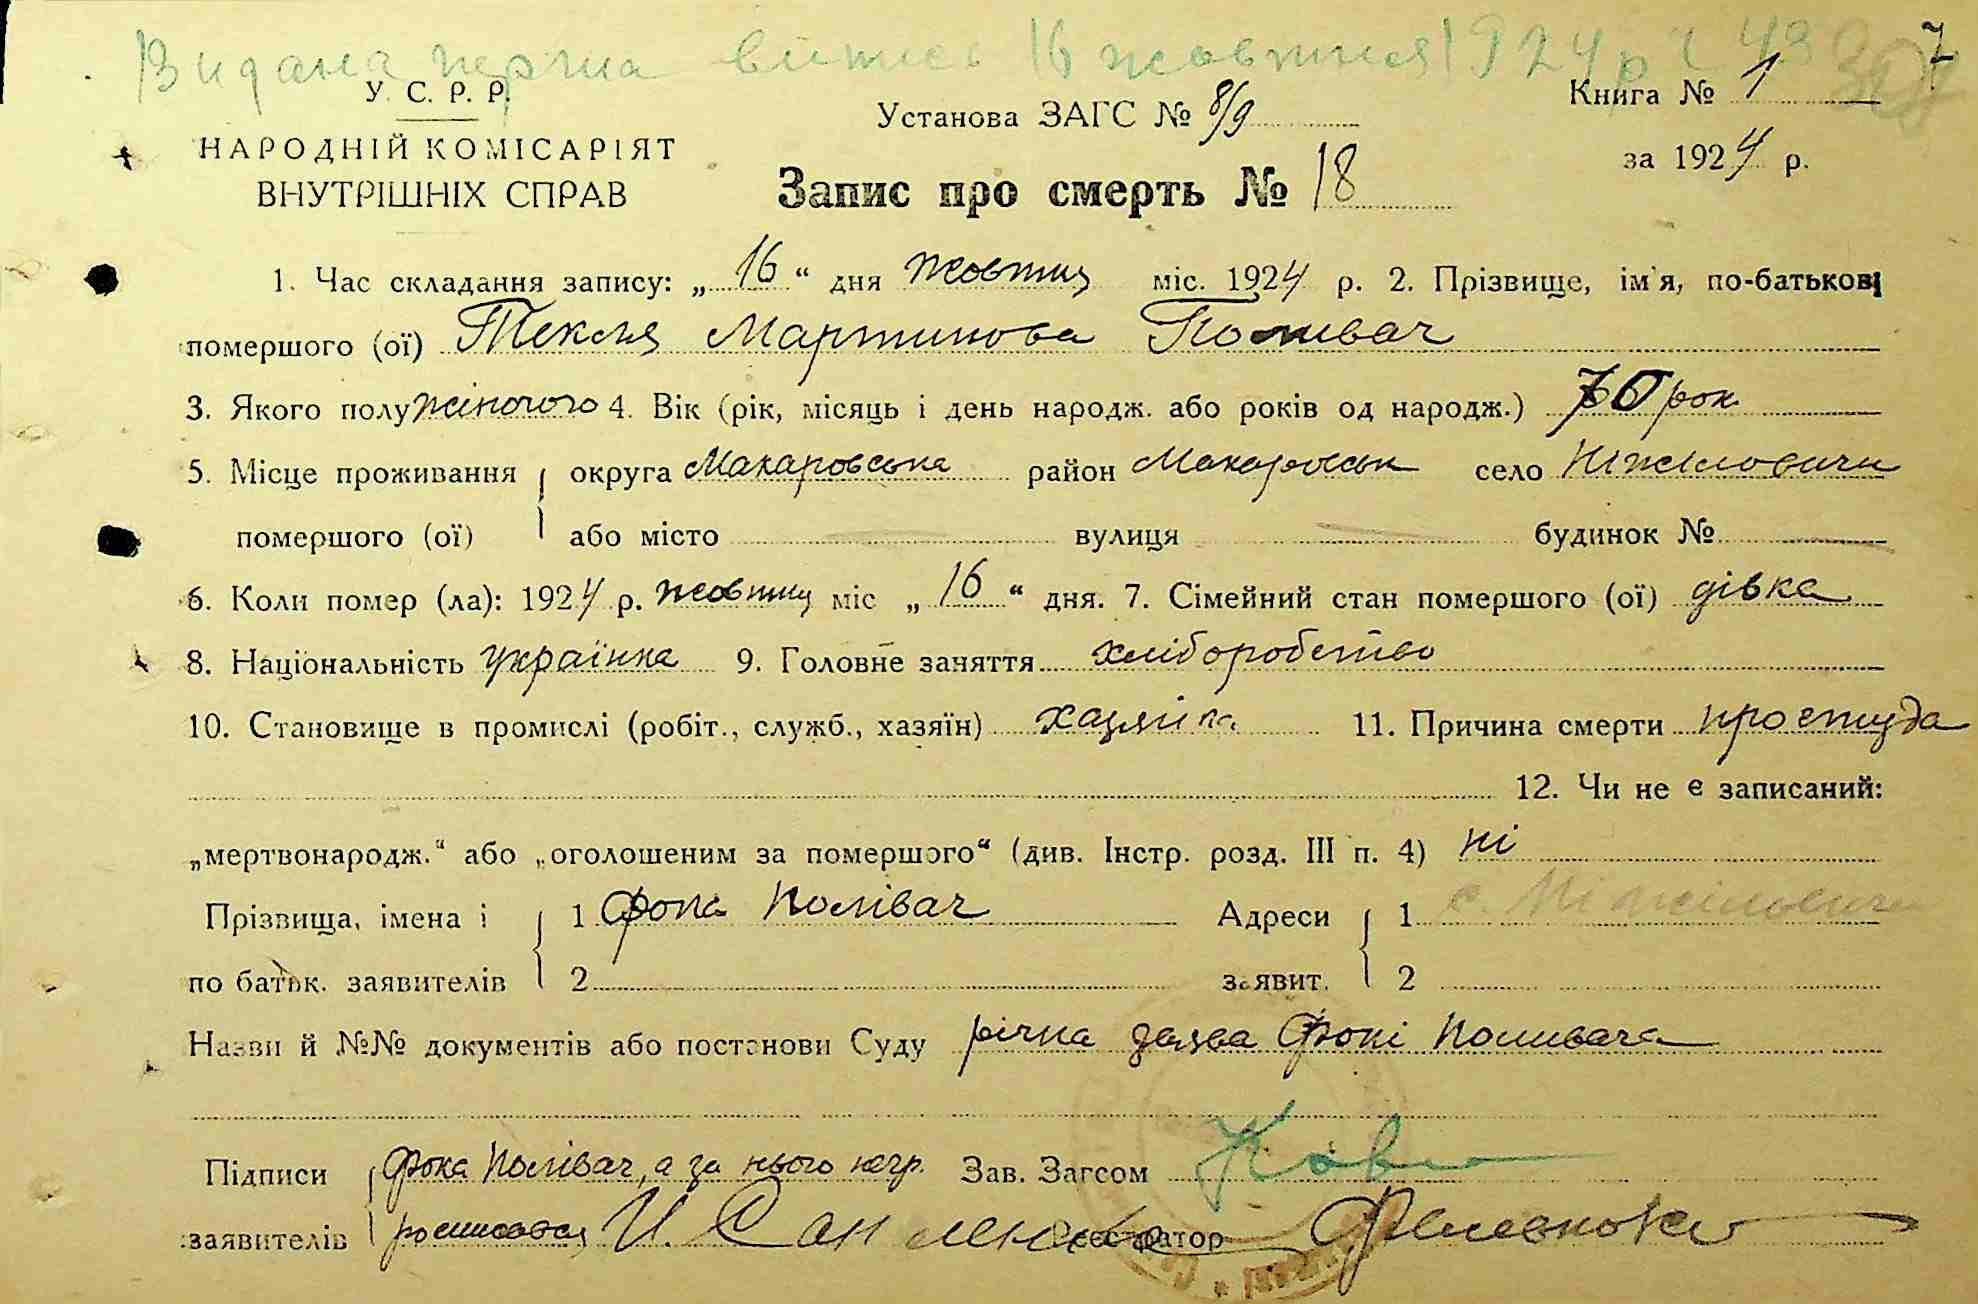 Видана перша випись 16 жовтня 1924 р
7
У. С. Р. Р.
НАРОДНІЙ КОМІСАРІЯТ
ВНУТРІШНІХ СПРАВ
Установа ЗАГС № 8/9
Книга № 1
за 1924 р.
Запис про смерть № 18
1. Час складання запису: „16“ дня жовтня міс. 1924 р. 2. Прізвище, ім'я, по-батькові
помершого (ої) Текля Мартинова Поливач
3. Якого полу жіночого 4. Вік (рік, місяць і день народж. або років од народж.) 70 рок
5. Місце проживання округа Макаровська район Макаровськ село Ніжиловичи
помершого (ої) або місто вулиця будинок №
6. Коли помер (ла): 1924 р. жовтня міс „16“ дня. 7. Сімейний стан помершого (ої) дівка
8. Національність українка 9. Головне заняття хліборобство
10. Становище в промислі (робіт., служб., хазяїн) хазяїка 11. Причина смерти простуда
12. Чи не є записаний:
„мертвонародж.“ або „оголошеним за помершого“ (див. Інстр. розд. III п. 4) ні
Прізвища, імена і 1 Фока Полівач Адреси 1 с. Ніжіловичи
по батьк. заявителів 2 заявит. 2
Назви й №№ документів або постанови Суду річна заява Фокі Поливача
Підписи Фока Полівач, а за нього негр. Зав. Загсом
заявителів росписався И. Реєстратор